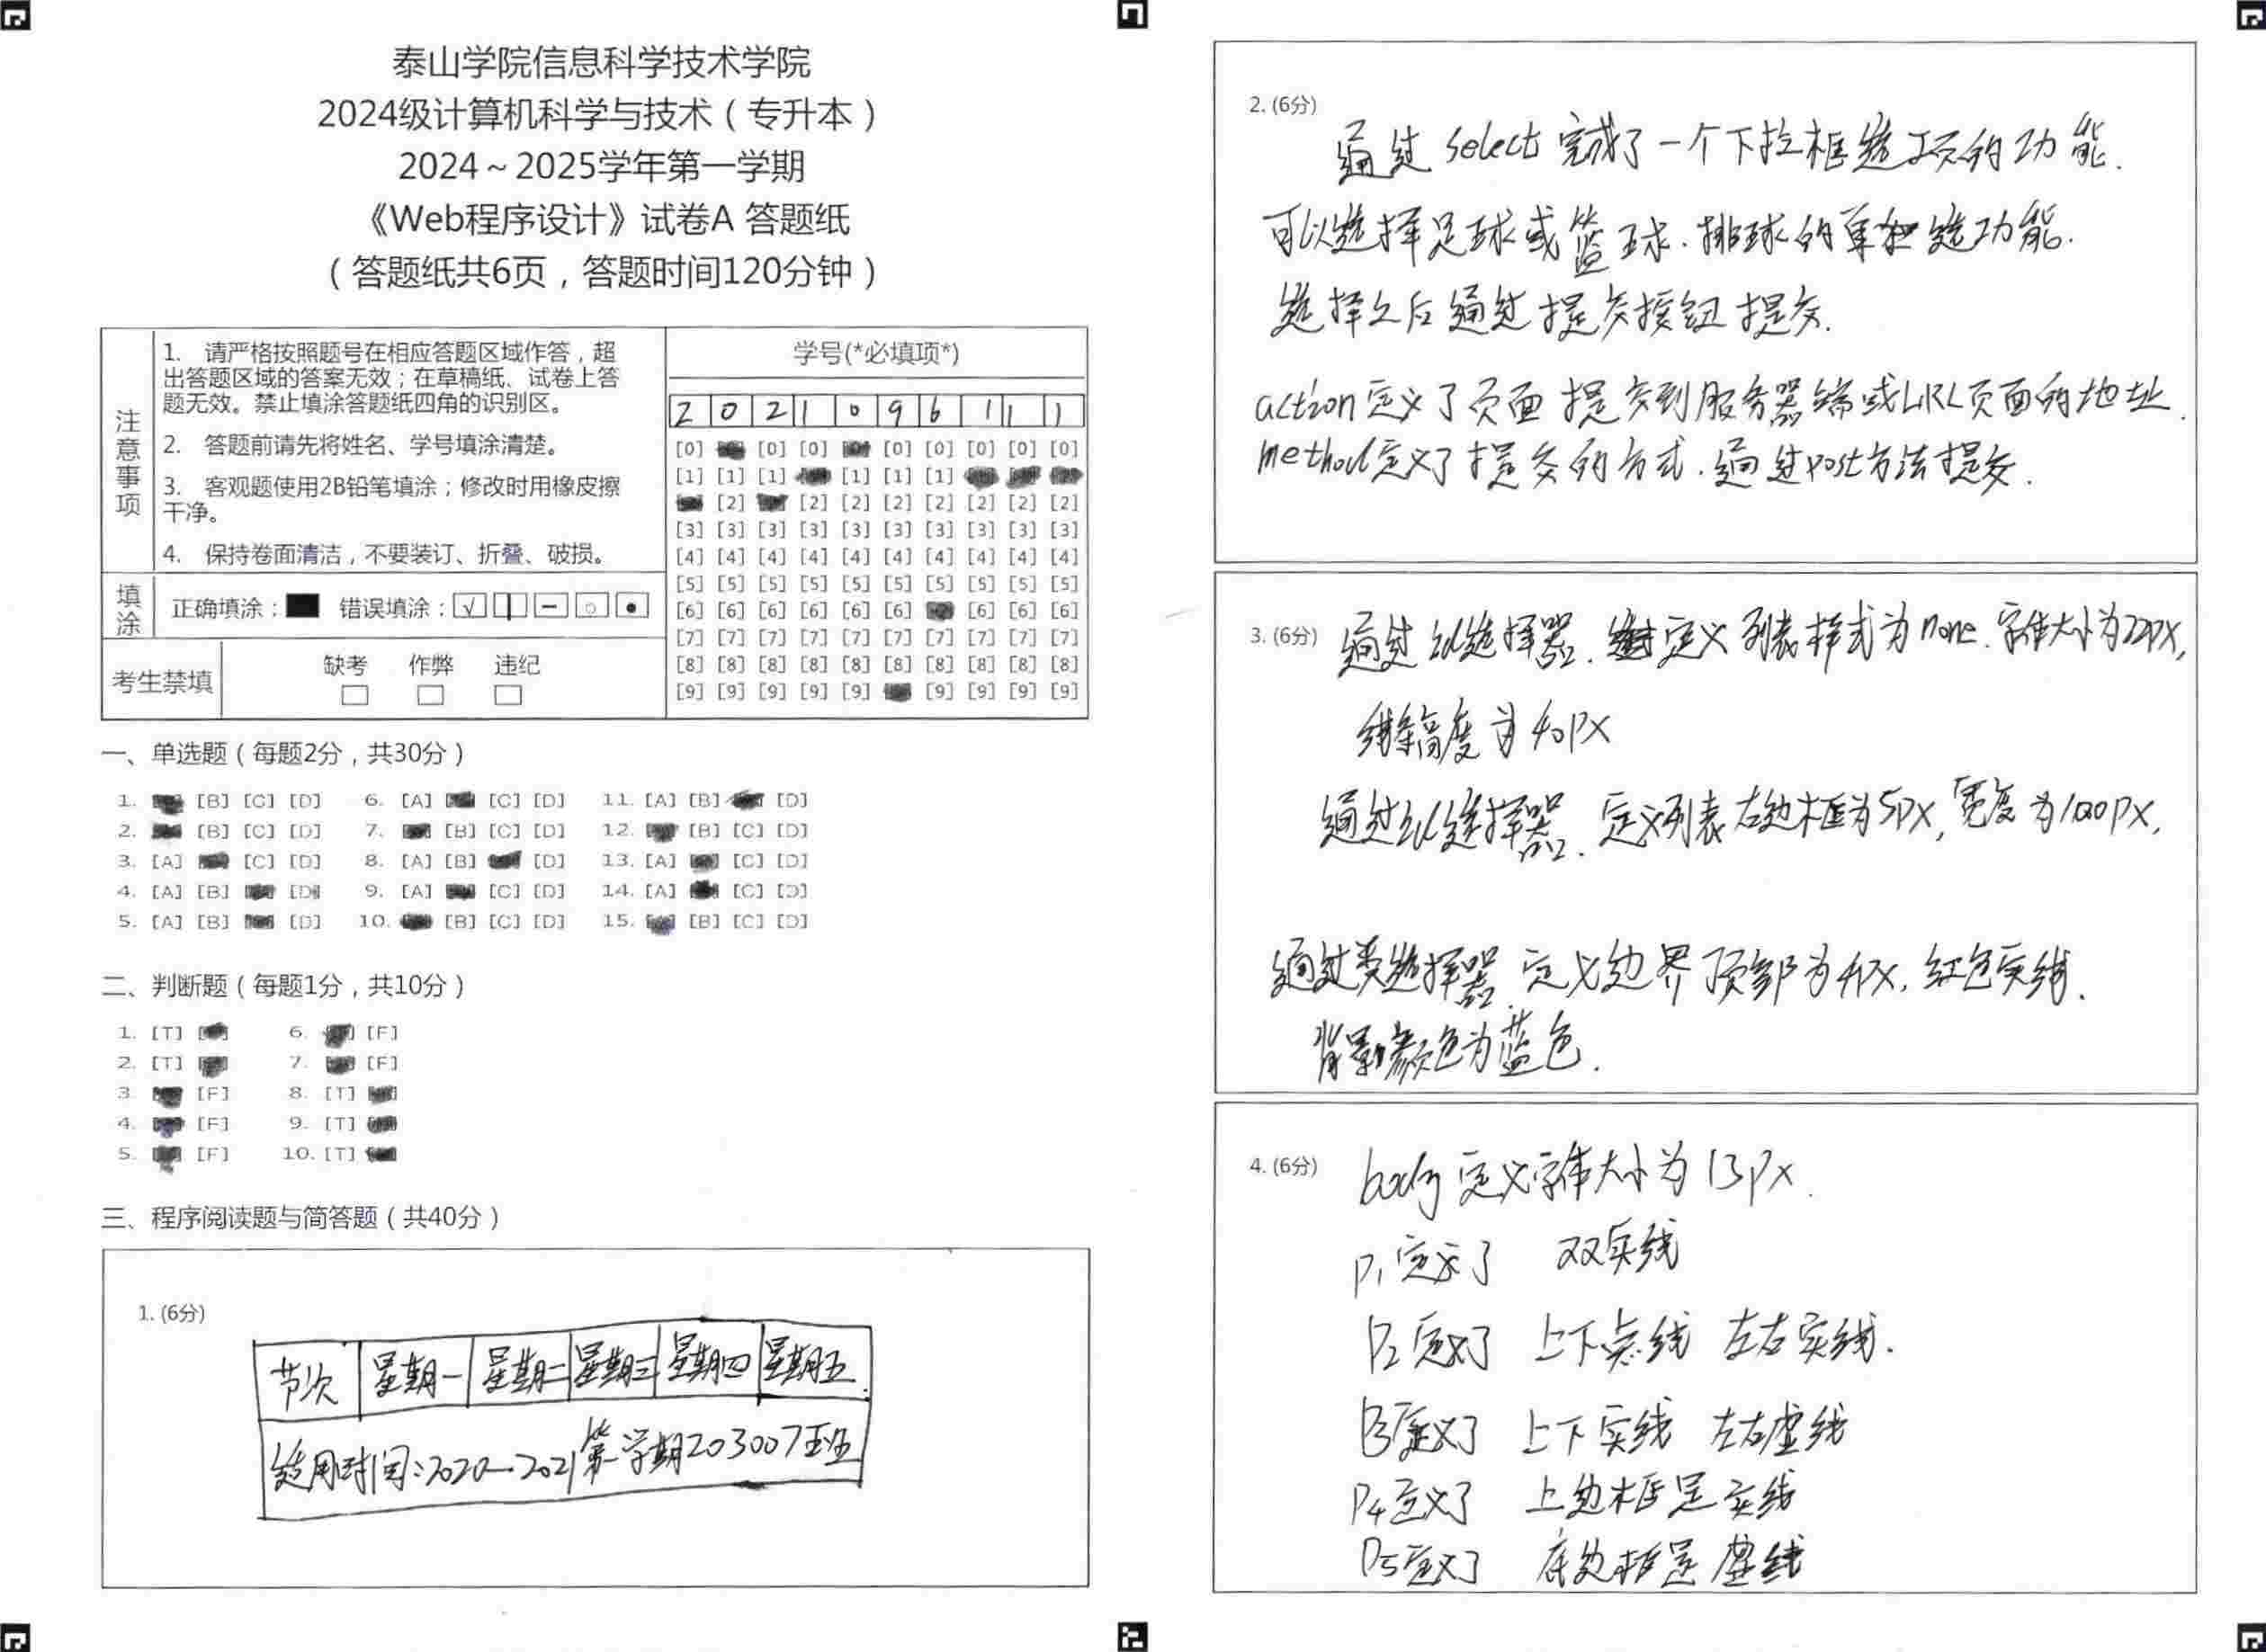 泰山学院信息科学技术学院
2024级计算机科学与技术（专升本）
2024～2025学年第一学期
《Web程序设计》试卷A 答题纸
（答题纸共6页，答题时间120分钟）
注意事项
1. 请严格按照题号在相应答题区域作答，超
出答题区域的答案无效；在草稿纸、试卷上答
题无效。禁止填涂答题纸四角的识别区。
2. 答题前请先将姓名、学号填涂清楚。
3. 客观题使用2B铅笔填涂；修改时用橡皮擦
干净。
4. 保持卷面清洁，不要装订、折叠、破损。
填涂
正确填涂： 错误填涂：
考生禁填
缺考 作弊 违纪
学号(*必填项*)
2 0 2 1 0 9 6 1 1 1
[0] [0] [0] [0] [0] [0] [0] [0]
[1] [1] [1] [1] [1] [1]
[2] [2] [2] [2] [2] [2] [2] [2]
[3] [3] [3] [3] [3] [3] [3] [3] [3] [3]
[4] [4] [4] [4] [4] [4] [4] [4] [4] [4]
[5] [5] [5] [5] [5] [5] [5] [5] [5] [5]
[6] [6] [6] [6] [6] [6] [6] [6] [6]
[7] [7] [7] [7] [7] [7] [7] [7] [7] [7]
[8] [8] [8] [8] [8] [8] [8] [8] [8] [8]
[9] [9] [9] [9] [9] [9] [9] [9] [9]
一、单选题（每题2分，共30分）
1. [B] [C] [D] 6. [A] [C] [D] 11. [A] [B] [D]
2. [B] [C] [D] 7. [B] [C] [D] 12. [B] [C] [D]
3. [A] [C] [D] 8. [A] [B] [D] 13. [A] [C] [D]
4. [A] [B] [D] 9. [A] [C] [D] 14. [A] [C] [D]
5. [A] [B] [D] 10. [B] [C] [D] 15. [B] [C] [D]
二、判断题（每题1分，共10分）
1. [T] 6. [F]
2. [T] 7. [F]
3. [F] 8. [T]
4. [F] 9. [T]
5. [F] 10. [T]
三、程序阅读题与简答题（共40分）
1. (6分)
节次 星期一 星期二 星期三 星期四 星期五
适用时间:2020—2021第一学期203007班
2. (6分)
通过select完成了一个下拉框选项的功能.
可以选择足球或篮球.排球的单选功能.
选择之后通过提交按钮提交.
action定义了页面提交到服务器端或URL页面的地址.
method定义了提交的方式.通过post方法提交.
3. (6分)
通过 选择器. 定义列表样式为none.字体大小为22px,
高度为40px
通过 选择器.定义列表右边框为5px,宽度为100px,
通过类选择器.定义边界顶部为4px,红色实线.
背景颜色为蓝色.
4. (6分)
body定义字体大小为13px.
P1定义了 双实线
P2定义了 上下点线 左右实线.
P3定义了 上下实线 左右虚线
P4定义了 上边框是实线
P5定义了 底边框是虚线